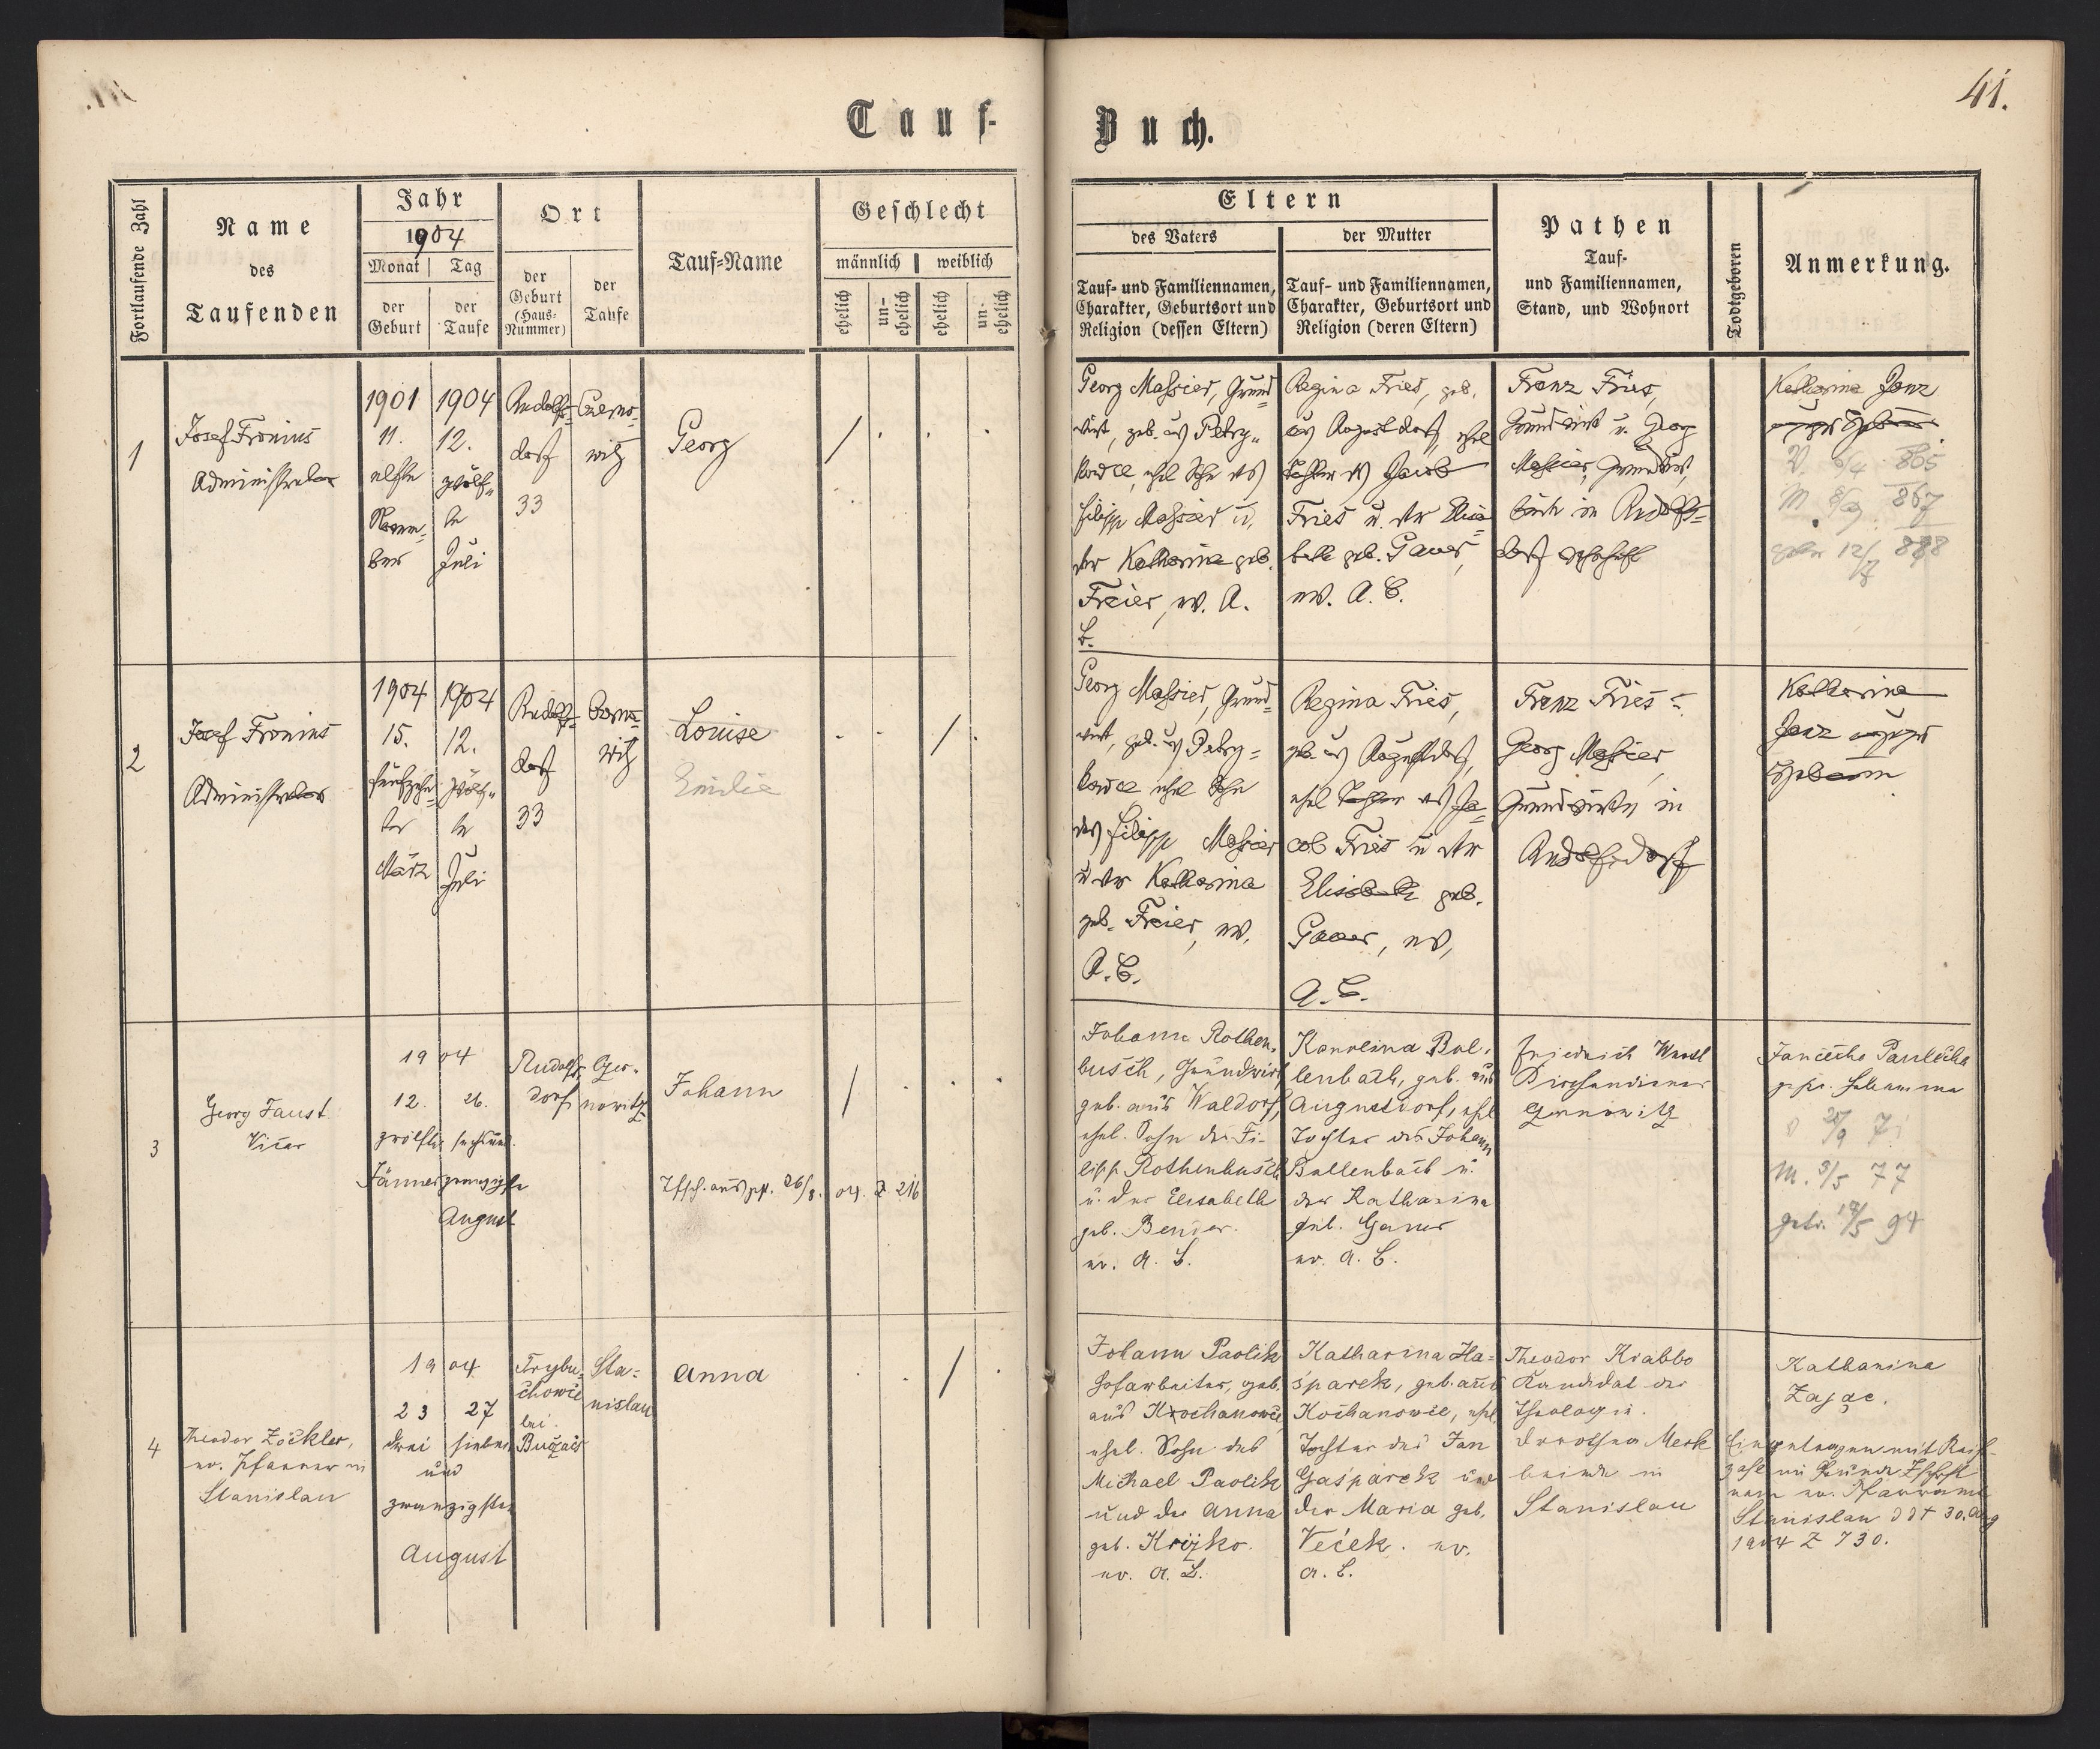 41.
Tauf-
Buch.
Fortlaufende Zahl
Name
des
Taufenden
Jahr
1904
Monat | Tag
der
Geburt
der
Taufe
Ort
der
Geburt
(Haus-
Nummer)
der
Taufe
Tauf=Name
Geschlecht
männlich
weiblich
ehelich
un-
ehelich
ehelich
un-
ehelich
Eltern
des Vaters
der Mutter
Tauf- und Familiennamen,
Charakter, Geburtsort und
Religion (dessen Eltern)
Tauf- und Familiennamen,
Charakter, Geburtsort und
Religion (deren Eltern)
Pathen
Tauf-
und Familiennamen,
Stand, und Wohnort
Todtgeboren
Anmerkung.
1
Josef Fronius
Administrator
1901
11.
elfte
Novem=
ber
1904
12.
zwölf=
te
Juli
Rudolfs=
dorf
33
Czerno=
witz
Georg
/
Georg Massier, Grund=
wirt, geb. aus Petry=
kowce, ehel Sohn des
Filipp Massier u.
der Katharina geb.
Freier, ev. A.
B.
Regina Fries, geb.
aus Augustdorf, ehel
Tochter des Jacob
Fries u. der Elisa=
beth geb. Gauer,
ev. A. B.
Franz Fries,
Grundwirt u. Georg
Massier, Grundwirt,
beide in Rudolfs=
dorf
Katharina Janz
V. 6/4 865
M 867
12/7 888
2
Josef Fronius
Administrator
1904
15.
fünfzehn=
ter
März
1904
12.
zwölf=
te
Juli
Rudolfs=
dorf
33
witz
Louise
Emilie
/
Georg Massier, Grund=
wirt, geb. aus Petry=
kowce ehel Sohn
des Filipp Massier
u der Katharina
geb. Freier, ev.
A. B.
Regina Fries,
geb. aus Augustdorf,
ehel Tochter des Ja=
cob Fries u der
Elisabeth geb.
Gauer, ev,
A. B.
Franz Fries u.
Georg Massier,
Grundwirte in
Rudolfsdorf
Katharina
Janz
3
Georg Faust.
Vicar
1904
12.
zwölfter
Jänner
26.
sechsund=
zwanzigste
August
Rudolfs=
dorf
Czer=
nowitz
Johann
/
Ztsch. ausgef. 26/8. 04. Z 216
Johann Rothen=
busch, Grundwirt,
geb. aus Waldorf,
ehel. Sohn des Fi=
lipp Rothenbusch
u. der Elisabeth
geb. Bender.
ev. A. B.
Karolina Bol=
lenbach, geb. aus
Augustdorf, ehel
Tochter des Johann
Bollenbach u.
der Katharina
geb. Gauer
ev. A. B.
Friedrich
Kirchendiener
Czernowitz
gepr. Hebamme
25/9 7
M. 3/5 77
getr. 12/5 94
4
Theodor Zöckler,
ev. Pfarrer in
Stanislau
1904
23 27
drei sieben
und
zwanzigsten
August
Trybu=
chowce
bei
Buczacz
Sta=
nislau
Anna
/
Johann Paolik
Hofarbeiter, geb.
aus Kochanowce,
ehel. Sohn des
Michael Paolik
und der Anna
geb. Krizko.
ev. A. B.
Katharina Ha=
sparek, geb. aus
Kochanowce, ehel
Tochter des Jan
Gasparek und
der Maria geb.
Vecek. ev.
A. B.
Theodor Krabbo
Kandidat der
Theologie.
Dorothea Merk
beide in
Stanislau
Katharina
Zając.
Eingetragen mit Reih=
zahl im Grunde Zschrft
vom ev. Pfarramt
Stanislau ddt 30. Aug
1904 Z 730.